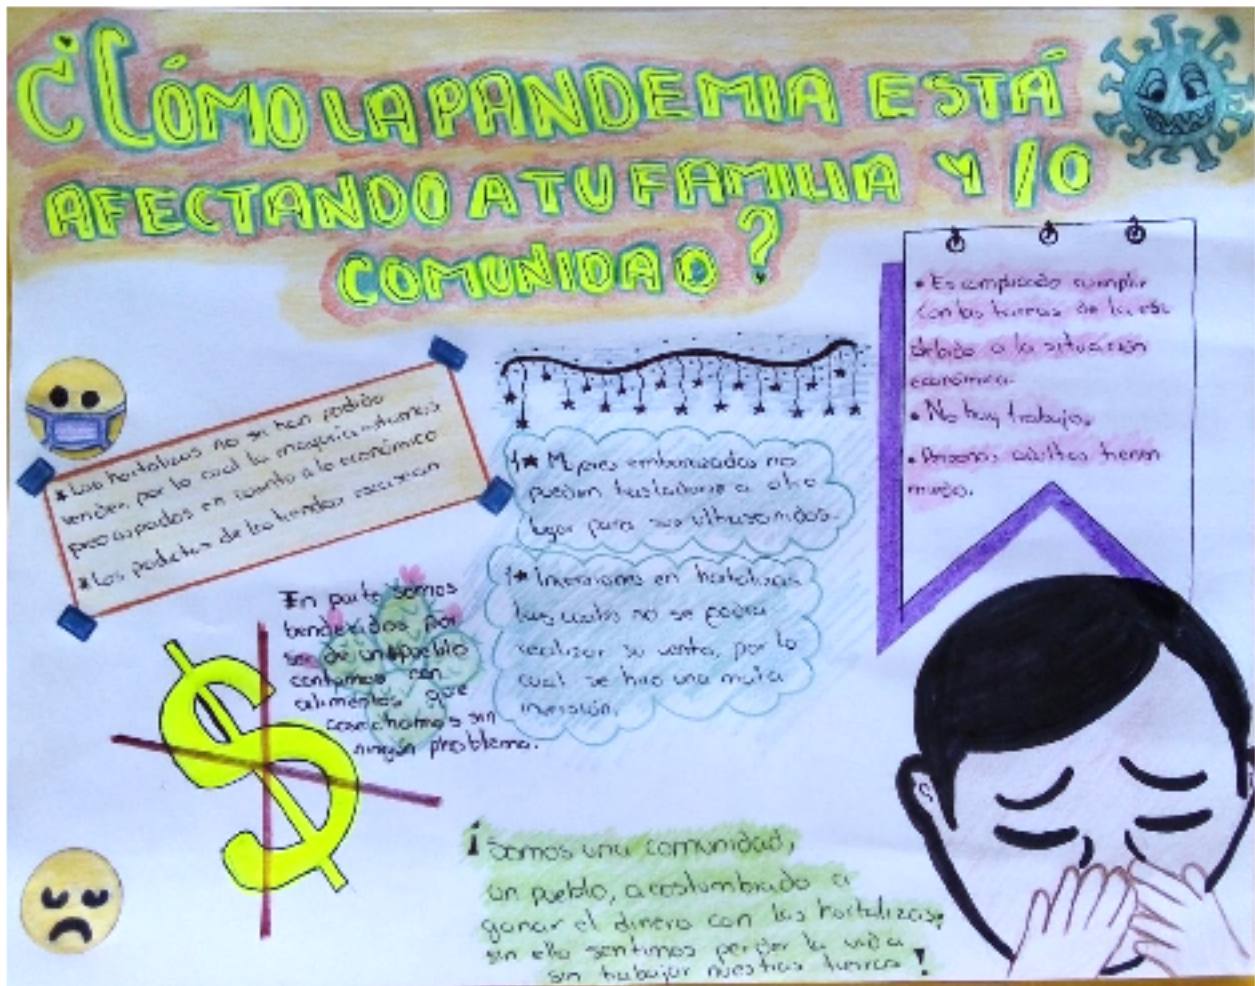 ¿CÓMO LA PANDEMIA ESTÁ
AFECTANDO A TU FAMILIA Y/O
COMUNIDAD?
• Es complicado cumplir
con las tareas de la esc
debido a la situación
económica.
• No hay trabajo.
• Personas adultas tienen
miedo.
* Las hortalizas no se han podido
vender, por lo cual la mayoría estamos
preocupados en cuanto a lo económico
* Los productos de las tiendas escasean
1* Mujeres embarazadas no
pueden trasladarse a otro
lugar para sus ultrasonidos.
* Inversiones en hortalizas
las cuales no se podrá
realizar su venta, por lo
cual se hizo una mala
inversión.
En parte somos
bendecidos por
ser de un pueblo
contamos con
alimentos que
cosechamos sin
ningún problema.
¡Somos una comunidad,
un pueblo, acostumbrado a
ganar el dinero con las hortalizas,
sin ello sentimos perder la vida
sin trabajar nuestras tierras!